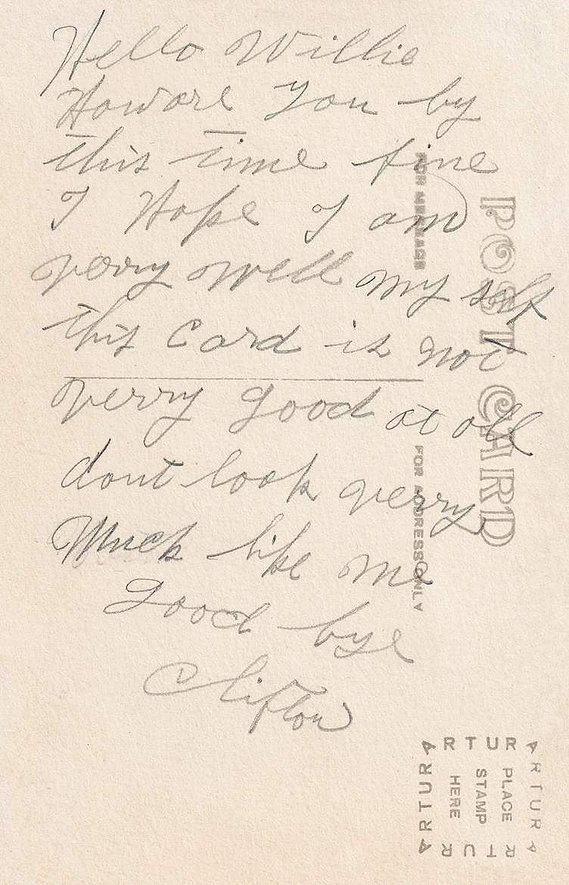 Hello Willie
Howare you by
this time fine
I Hope I am
verry well my self
this card is not
verry good at all
dont look verry
Much like me
Good bye
Clifton
POST CARD
FOR MESSAGE
FOR ADDRESS ONLY
ARTURA
PLACE
STAMP
HERE
ARTURA
ARTURA
ARTURA